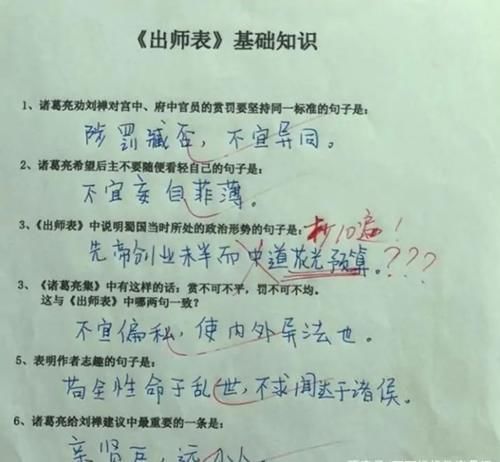 《出师表》基础知识
1、诸葛亮劝刘禅对宫中、府中官员的赏罚要坚持同一标准的句子是:
陟罚臧否，不宜异同。
2、诸葛亮希望后主不要随便看轻自己的句子是:
不宜妄自菲薄。
3、《出师表》中说明蜀国当时所处的政治形势的句子是:
抄10遍！
先帝创业未半而中道花光预算。???
3、《诸葛亮集》中有这样的话：赏不可不平，罚不可不均。
这与《出师表》中哪两句一致？
不宜偏私，使内外异法也。
5、表明作者志趣的句子是:
苟全性命于乱世，不求闻达于诸侯。
6、诸葛亮给刘禅建议中最重要的一条是:
亲贤臣，远小人